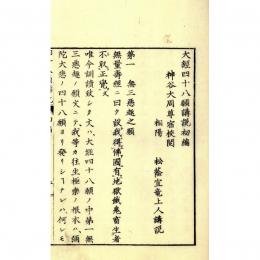 大經四十八願講説初編
神谷大周尊宿校閲
相陽 松蔭宜竜上人講説
第一 無三惡趣之願
無量壽經ニ曰ク設我得佛國有地獄餓鬼畜生者
不取正覺文
唯今訓讀致シタ文ハ大經四十八願ノ中第一無
三惡趣ノ願文ニテ我等カ往生極樂ノ根本ハ彌
陀大悲ノ四十八願ヨリ發リシコナレハ何レモ